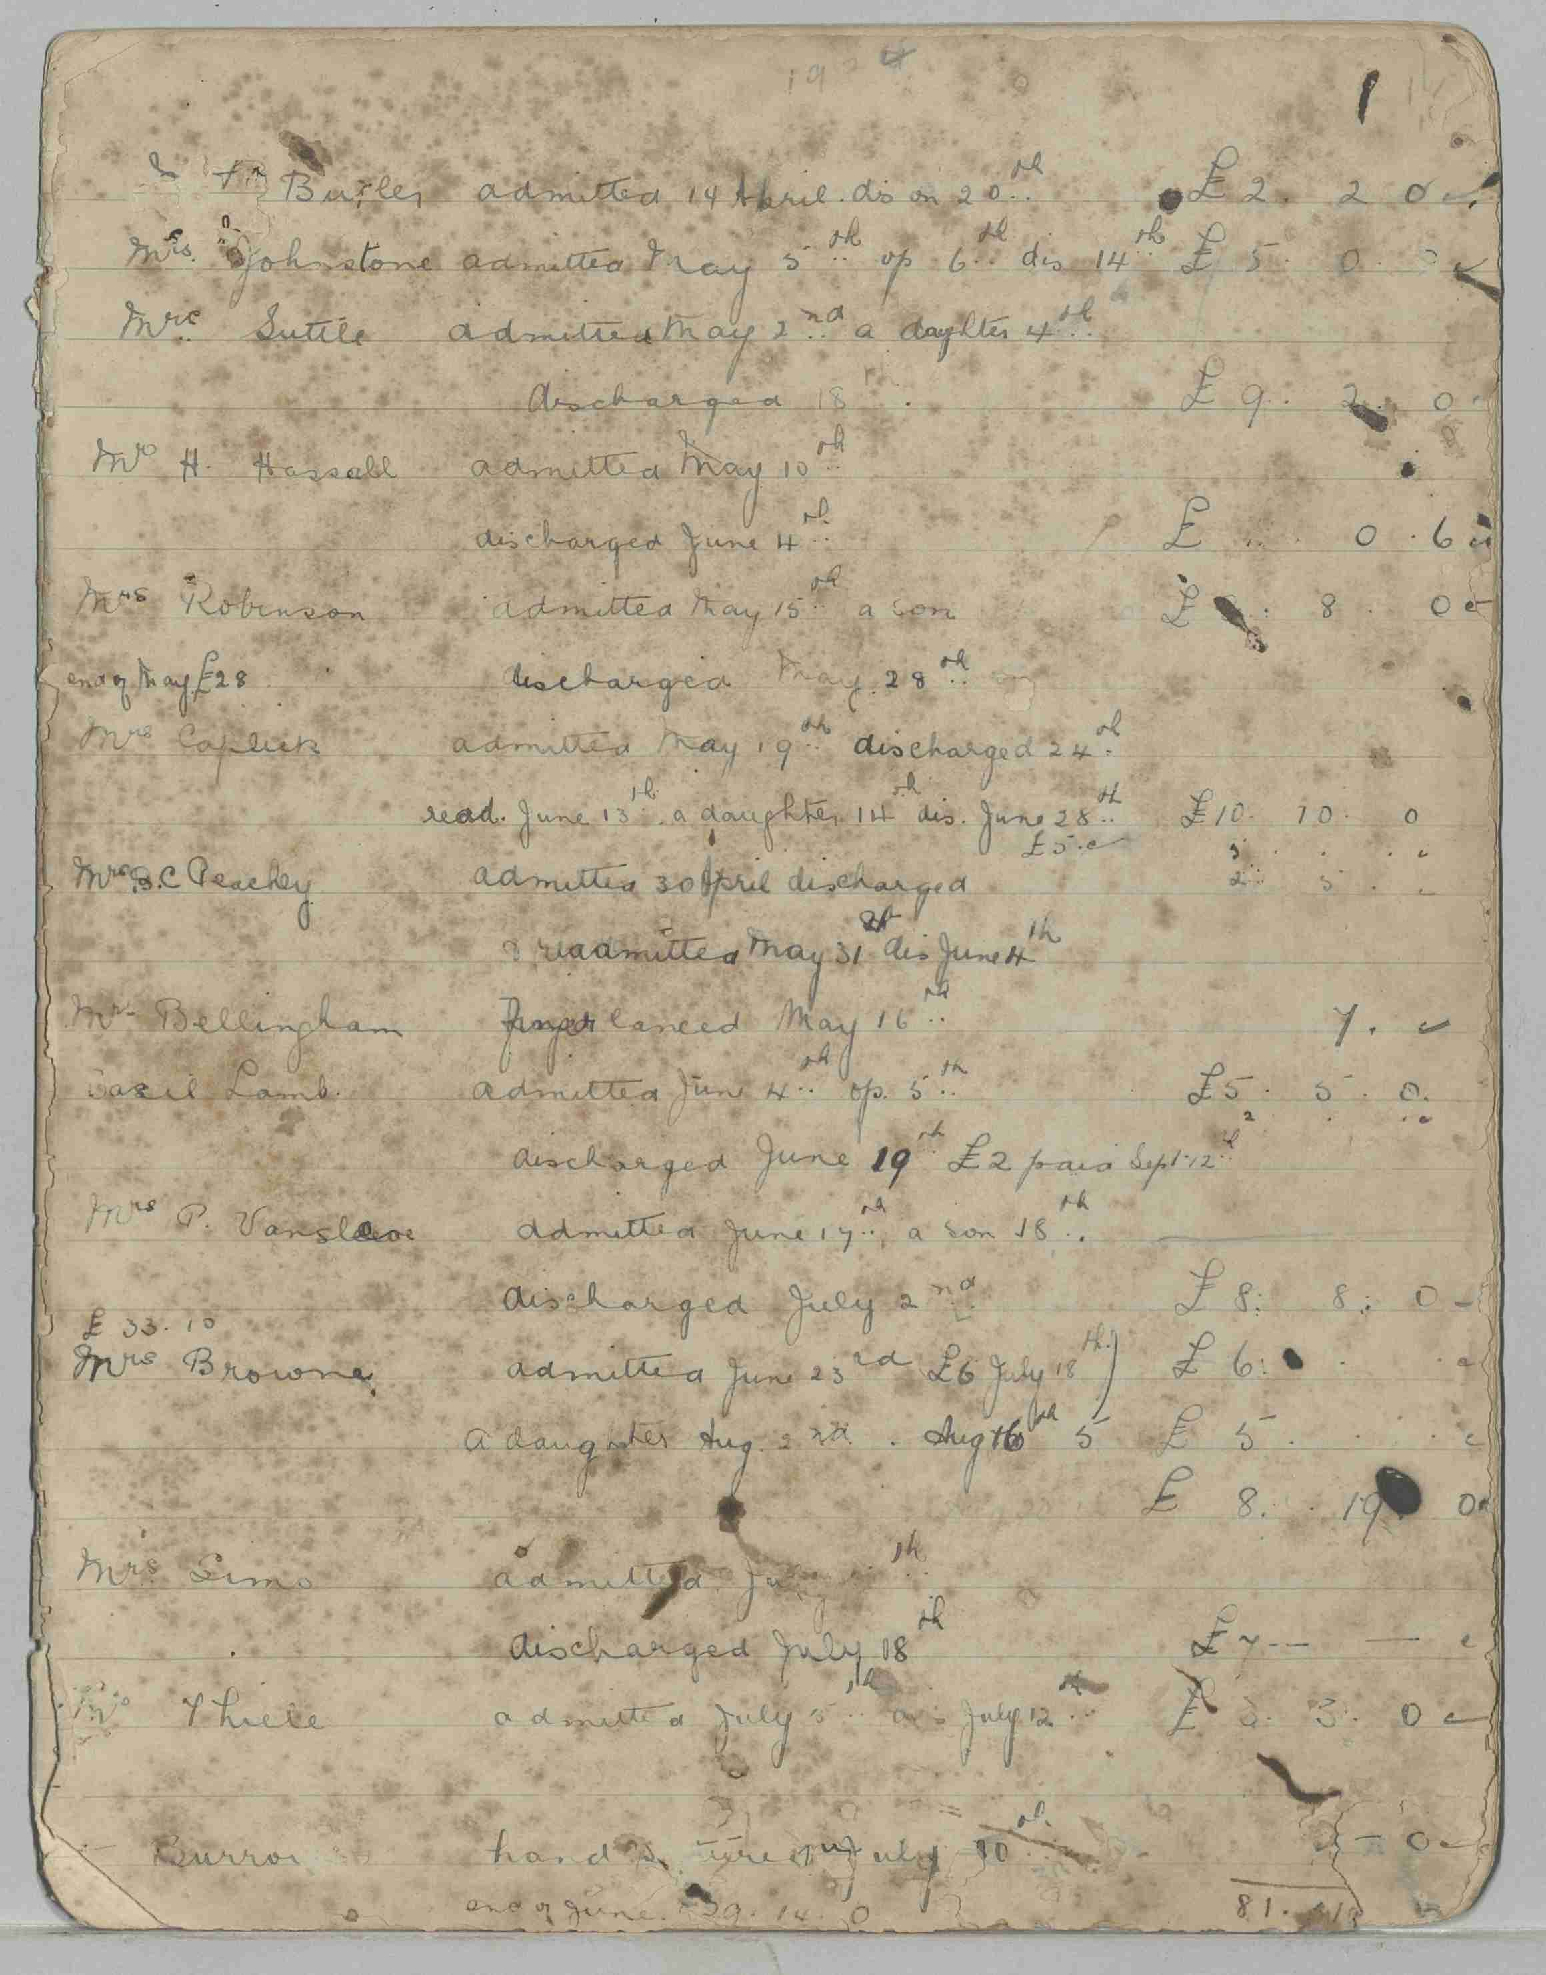 192
1
Butler admitted 14 April. dis on 20th £2. 2 0
Mrs. Johnstone admitted May 5th op 6th dis 14th £5. 0. 0
Mrs. Suttle admitted May 2nd a dayhter 4th
discharged 18 £9. 2. 0
Mrs H. Hassall admitted May 10th
discharged June 4th £ 0. 6
Mrs Robinson admitted May 15th a son £ 8. 0
end of May £28 discharged May 28th
Mrs admitted May 19th discharged 24th
read. June 13th. a daughter 14th dis. June 28th £10. 10. 0
£5.
Mrs B.C Peachey admitted 30 April discharged 2 5
readmitted May 31st dis June 4th
Mr Bellingham finger lanced May 16th 7.
Basil Lamb. admitted June 4th op. 5th £5. 5. 0.
2
discharged June 19th £2 paid Sept. 12th
Mrs P. admitted June 17th, a son 18th.
discharged July 2nd £8: 8: 0
£33. 10
Mrs Browne admitted June 23rd £6 July 18th) £6:
a daughter Aug. 2nd. Aug 16th 5 £5.
£8. 19 0
Mrs Sims admitted
discharged July 18th £7 -- —
Thiele admitted July 5th dis July 12th £3. 3. 0
hand July 30th 0
end of June. 29. 14. 0 81.